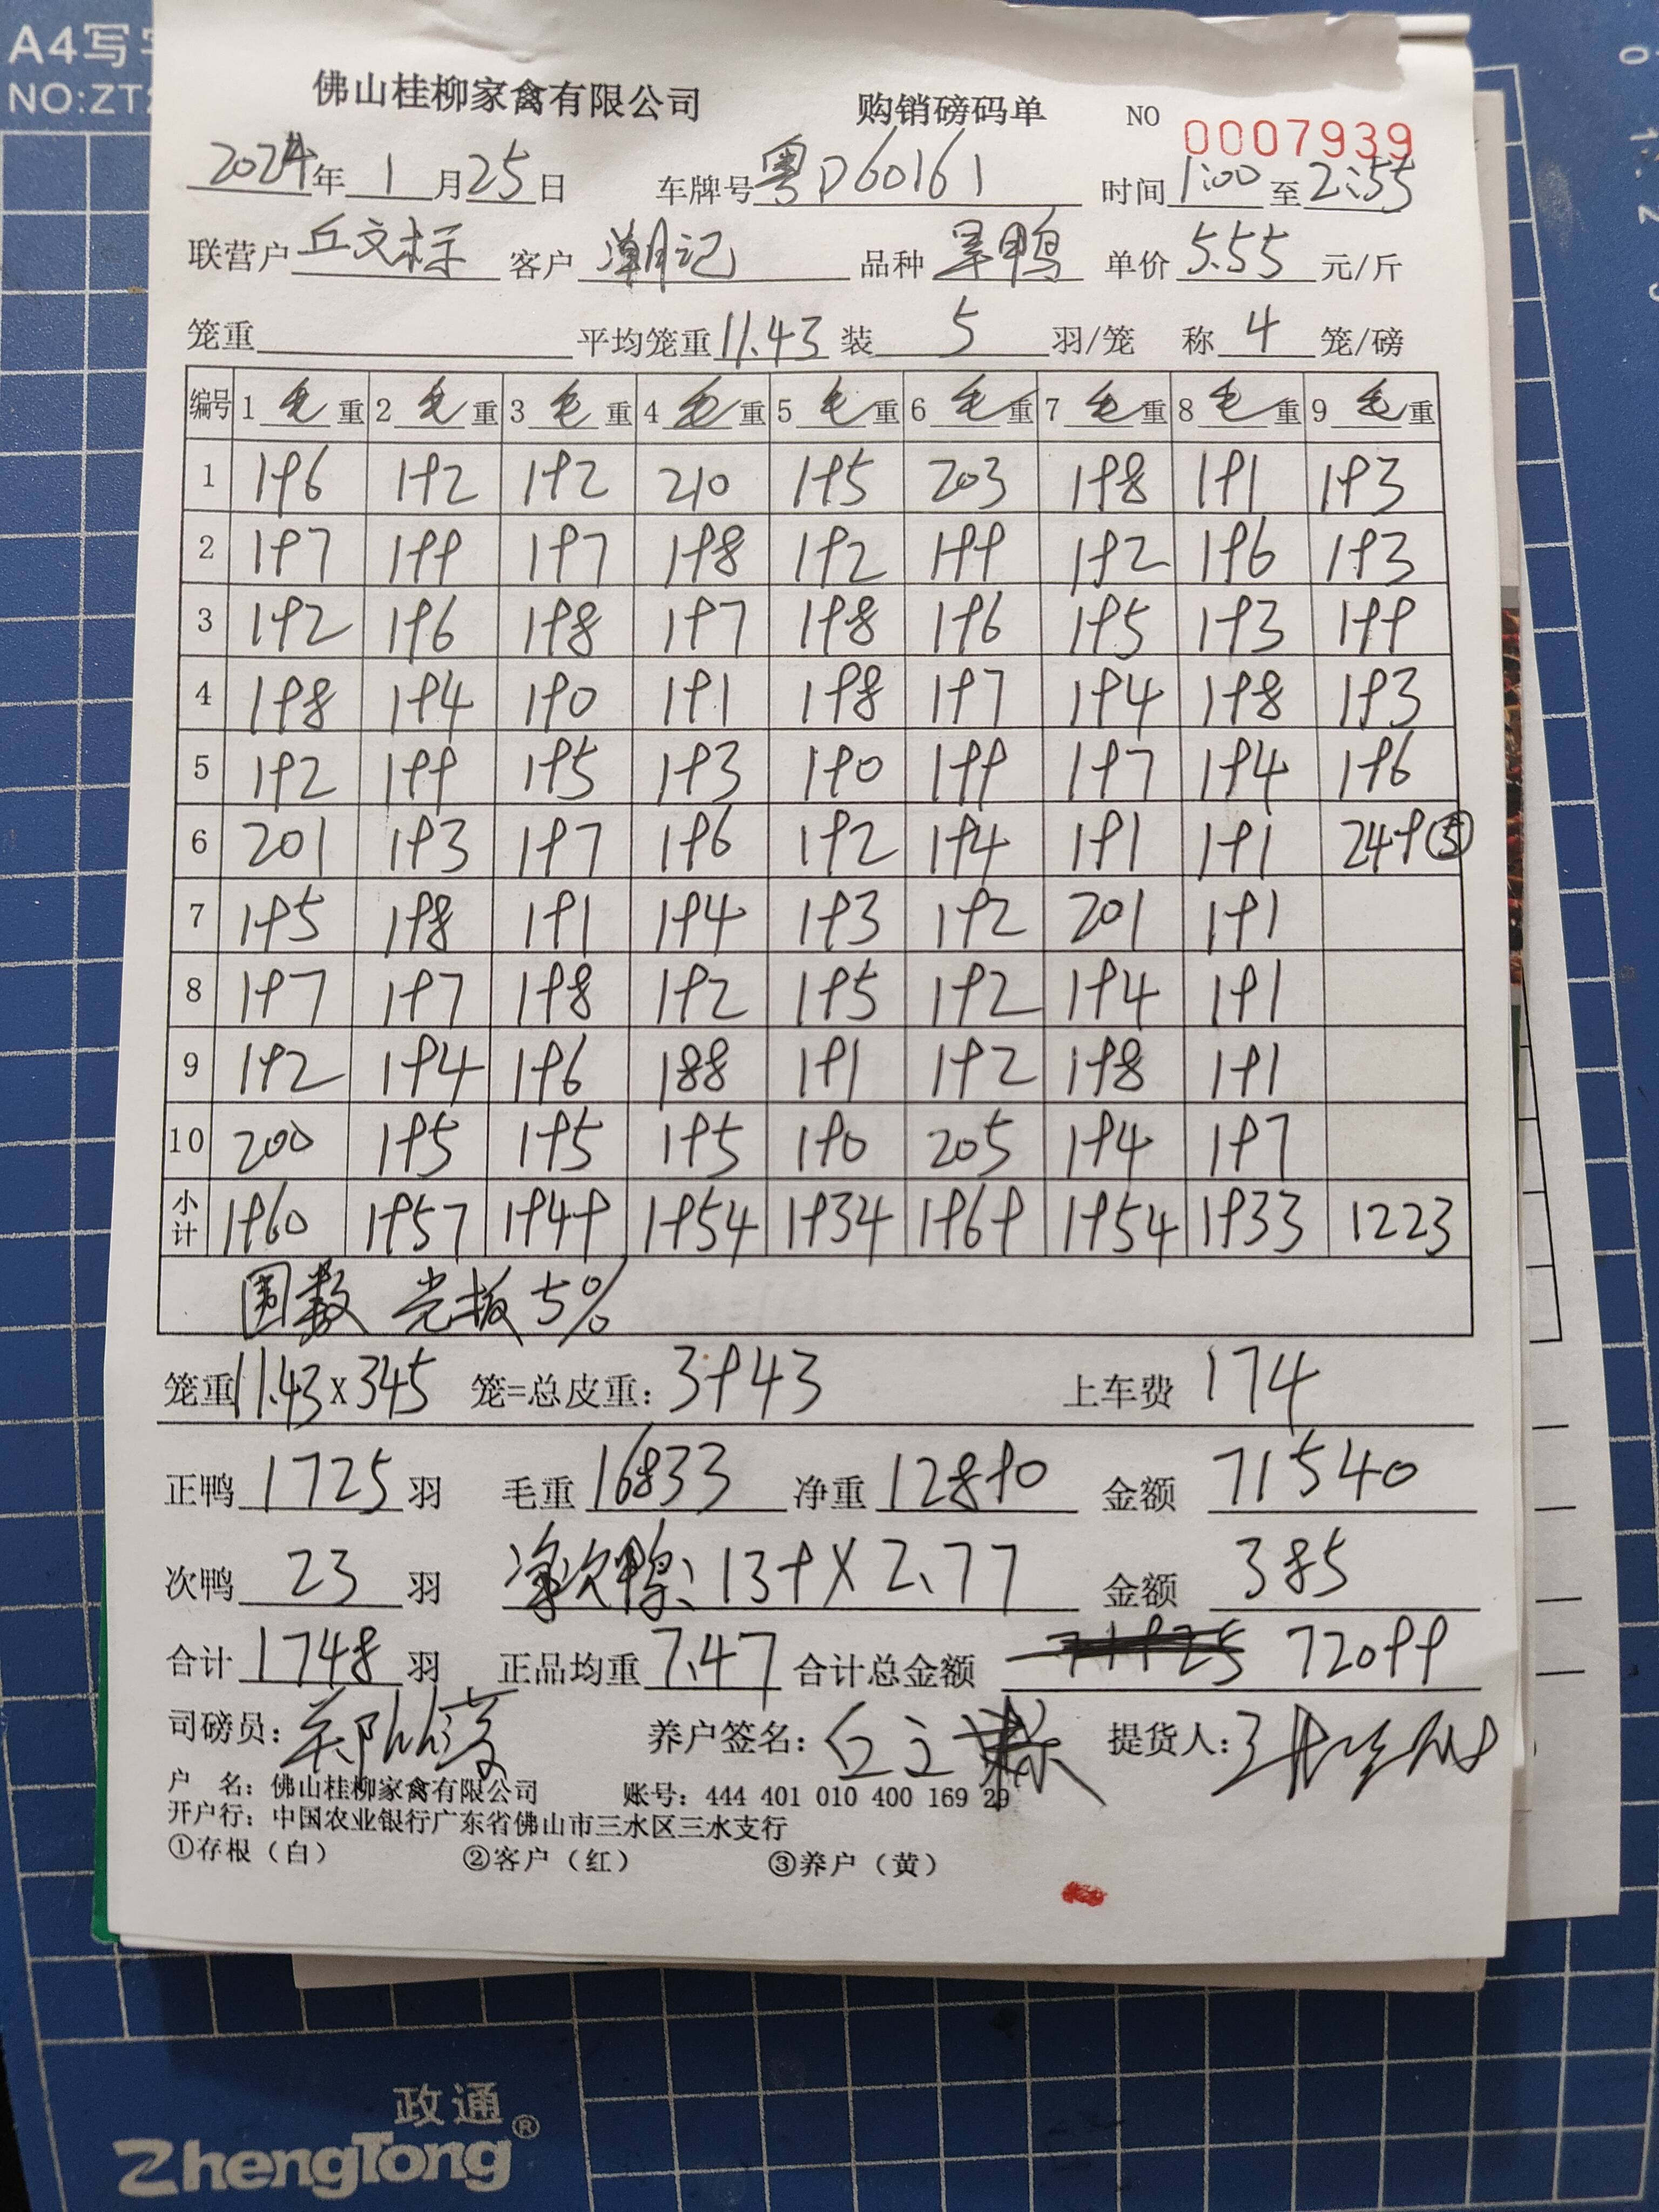 A4写字
NO:ZT
佛山桂柳家禽有限公司 购销磅码单 NO 0007939
2024年 1 月25日 车牌号粤D60161 时间1:00至2:55
联营户丘文标 客户 潮记 品种 旱鸭 单价5.55元/斤
笼重 平均笼重11.43装 5 羽/笼 称 4 笼/磅
编号 1 毛 重 2 毛 重 3 毛 重 4 毛 重 5 毛 重 6 毛 重 7 毛 重 8 毛 重 9 毛 重
1 196 192 192 210 195 203 198 191 193
2 197 199 197 198 192 199 192 196 193
3 192 196 198 197 198 196 195 193 199
4 198 194 190 191 198 197 194 198 193
5 192 199 195 193 190 199 197 194 196
6 201 193 197 196 192 194 191 191 249⑤
7 195 198 191 194 193 192 201 191
8 197 197 198 192 195 192 194 191
9 192 194 196 188 191 192 198 191
10 200 195 195 195 190 205 194 197
小计 1960 1957 1949 1954 1934 1969 1954 1933 1223
围数 5%
笼重11.43X345 笼=总皮重:3943 上车费 174
正鸭 1725 羽 毛重 16833 净重 12890 金额 71540
次鸭 23 羽 净次鸭: 139X2.77 金额 385
合计 1748 羽 正品均重 7.47 合计总金额 71925 72099
司磅员: 养户签名: 提货人:
户 名: 佛山桂柳家禽有限公司 账号: 444 401 010 400 169 29
开户行: 中国农业银行广东省佛山市三水区三水支行
①存根(白) ②客户(红) ③养户(黄)
政通®
ZhengTong